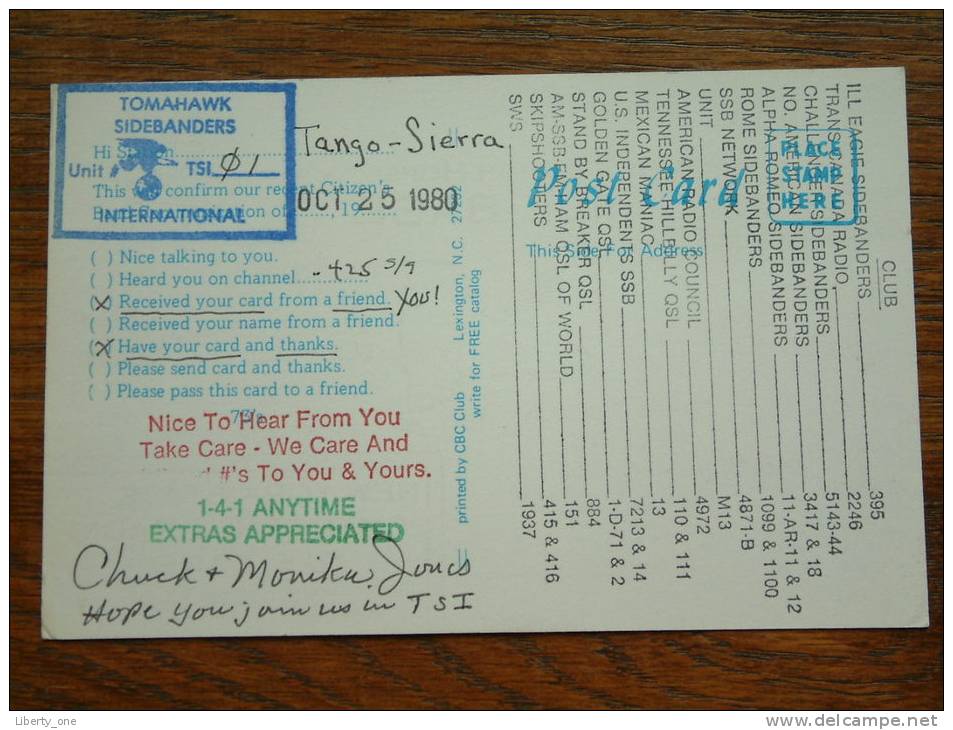 TOMAHAWK
SIDEBANDERS
Hi Station
Unit # TSI Ø1
Tango-Sierra
This will confirm our recent Citizen's
Band Communication of ........, 19........
INTERNATIONAL
OCT 25 1980
( ) Nice talking to you.
( ) Heard you on channel .425 5/9
(X) Received your card from a friend. You!
( ) Received your name from a friend.
(X) Have your card and thanks.
( ) Please send card and thanks.
( ) Please pass this card to a friend.
73's
Nice To Hear From You
Take Care - We Care And
#'s To You & Yours.
1-4-1 ANYTIME
EXTRAS APPRECIATED
Chuck + Monika Jones
Hope you join us in TSI
printed by CBC Club Lexington, N.C. 27292
write for FREE catalog
Post Card
This Side for Address
PLACE
STAMP
HERE
CLUB
ILL EAGLE SIDEBANDERS 395
TRANSCANADA RADIO 2246
CHALLENGE SIDEBANDERS 5143-44
NO. AMERICAN SIDEBANDERS 3417 & 18
ALPHA ROMEO SIDEBANDERS 11-AR-11 & 12
ROME SIDEBANDERS 1099 & 1100
SSB NETWORK 4871-B
UNIT M13
AMERICAN RADIO COUNCIL 4972
TENNESSEE HILLBILLY QSL 110 & 111
MEXICAN MANIAC 13
U.S. INDEPENDENTS SSB 7213 & 14
GOLDEN GATE QSL 1-D-71 & 2
STAND BY BREAKER QSL 884
AM-SSB-FM HAM QSL OF WORLD 151
SKIPSHOOTERS 415 & 416
SWS 1937
Liberty_one
www.delcampe.net